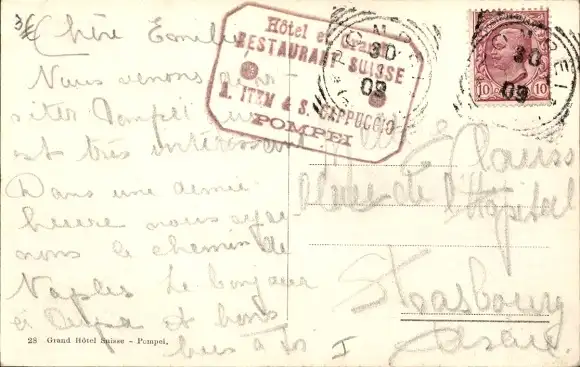 3€
Chère Emilie
Nous venons de vi-
siter Pompéi
est très intéressant
Dans une demie
heure nous
nons le chemin de
Naples Le bonjour
et bons
à
Hôtel et Grand
RESTAURANT SUISSE
A. ITEN & S. CAPPUCCIO
POMPEI
POMPEI
30
09
30
09
10 10
Clauss
Place de l'Hôpital
Strasbourg
Alsace
I
28 Grand Hôtel Suisse - Pompei.